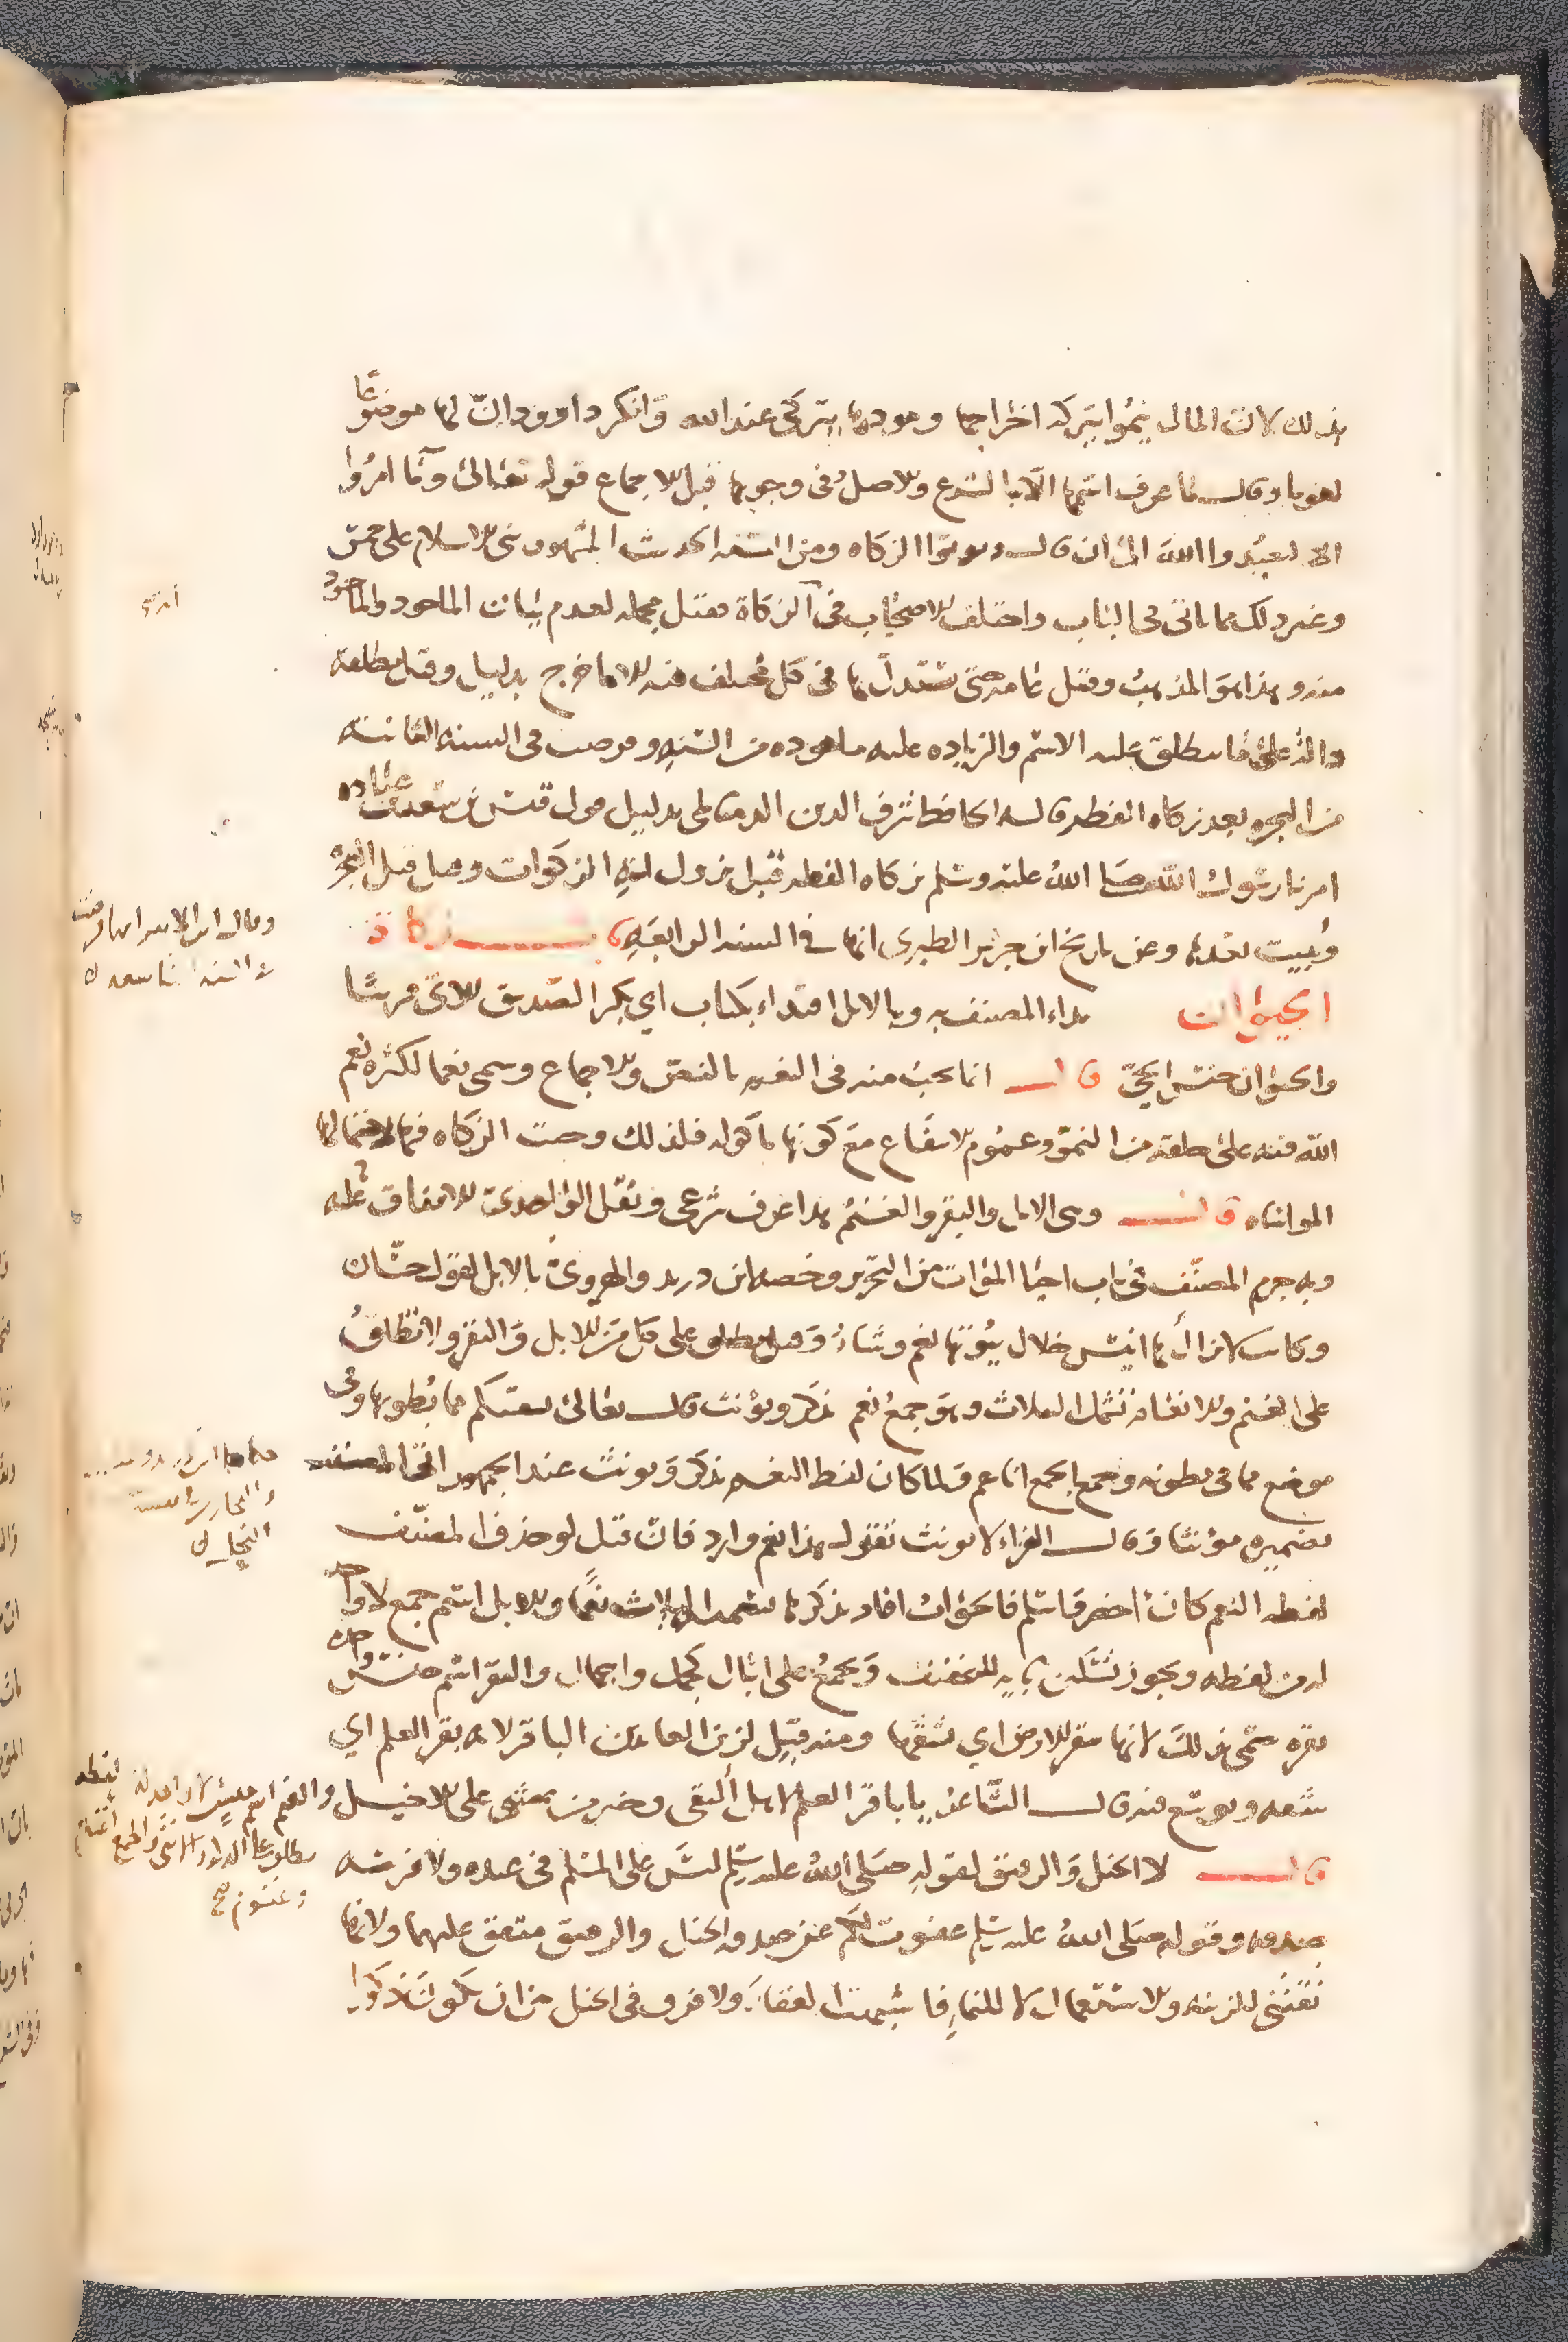 بذلك لان المال ينموا ببركة اخراجها ومودها يتزكى عند الله وانكر داوود ان لها موضوعا
لغويا وقال ما عرف اسمها الا بالشرع والاصل في وجوبها قبل الاجماع قوله تعالى وما امروا
الا ليعبدوا الله الى ان قال ويوتوا الزكاه ومن السنه الحديث المشهور بنى الاسلام على خمس
وغير ذلك مما ياتى في الباب واختلف الاصحاب في آية الزكاة فقيل مجمله لعدم بيان الماخوذ والماخوذ
منه وهذا هو المذهب وقيل عامه حتى يستدل بها في كل مختلف فيه الا ما خرج بدليل وقيل مطلقه
دالة على ما ينطلق عليه الاسم والزياده عليه ماخوذه من السنه وفرضت في السنه الثانيه
من الهجره بعد زكاه الفطر قاله الحافظ شرف الدين الدمياطى بدليل قول قيس بن سعد بن عباده
امرنا رسول الله صلى الله عليه وسلم بزكاه الفطر قبل نزول اية الزكوات وقيل قبل الهجره
وبينت بعدها وعن تاريخ ابن جرير الطبرى انها في السنه الرابعه باب زكاة
الحيوان بداء المصنف به وبالابل اقتداء بكتاب ابي بكر الصديق الاتى قريبا
والحيوان جنس الحي قال انما تجب منه في النعم بالنص والاجماع وسمى نعما لكثرة نعم
الله فيه على خلقه من النمو وعموم الانتفاع مع كونها ماكوله فلذلك وجبت الزكاه فيها لاحتمالها
المواساه قال وهى الابل والبقر والغنم هذا عرف شرعى ونقل الواحدى الاتفاق عليه
وبه جزم المصنف في باب احيا الموات من التحرير وخصه ابن دريد والهروى بالابل لقول حسان
وكانت لا يزال بها انيس خلال بيوتها نعم وشاء وقيل يطلق على كل من الابل والبقر ولا يطلق
على الغنم والانعام تشمل الثلاث وهو جمع نعم يذكر ويؤنث قال تعالى نسقيكم مما بطونها وفى
موضع مما في بطونه وجمع الجمع اناعم ولما كان لفظ النعم يذكر ويونث عند الجمهور اتى المصنف
بضميره مؤنثا وقال الفراء لا يونث تقول هذا نعم وارد فان قيل لو حذف المصنف
لفظ النعم كان اخصر واسلم فالجواب افاد بذكرها تسميه الثلاث نعما والابل اسم جمع لا واحد
له من لفظه ويجوز تسكين بايه للتخفيف ويجمع على ابال كجمل واجمال والبقر اسم جنس واحده
بقره سمى بذلك لانها تبقر الارض اي تشقها ومنه قيل لزين العابدين الباقر لانه بقر العلم اي
شقه وتوسع فيه قال الشاعر يا باقر العلم لاهل التقى وخير من يمشى على الاخيل والغنم اسم جنس لا واحد له من لفظه
قال لا الخيل والرقيق لقوله صلى الله عليه وسلم ليس على المسلم في عبده ولا فرسه
صدقه وقوله صلى الله عليه وسلم عفوت لكم عن صدقه الخيل والرقيق متفق عليهما ولانها
تقتنى للزينه والاستعمال لا للنما فاشبهت العقار ولا فرق في الخيل من ان تكون ذكورا
وقال ابن الاثير انها فرضت
في السنه التاسعه
يطلق على الذكور والانثى والجمع اغنام
وغنوم صح